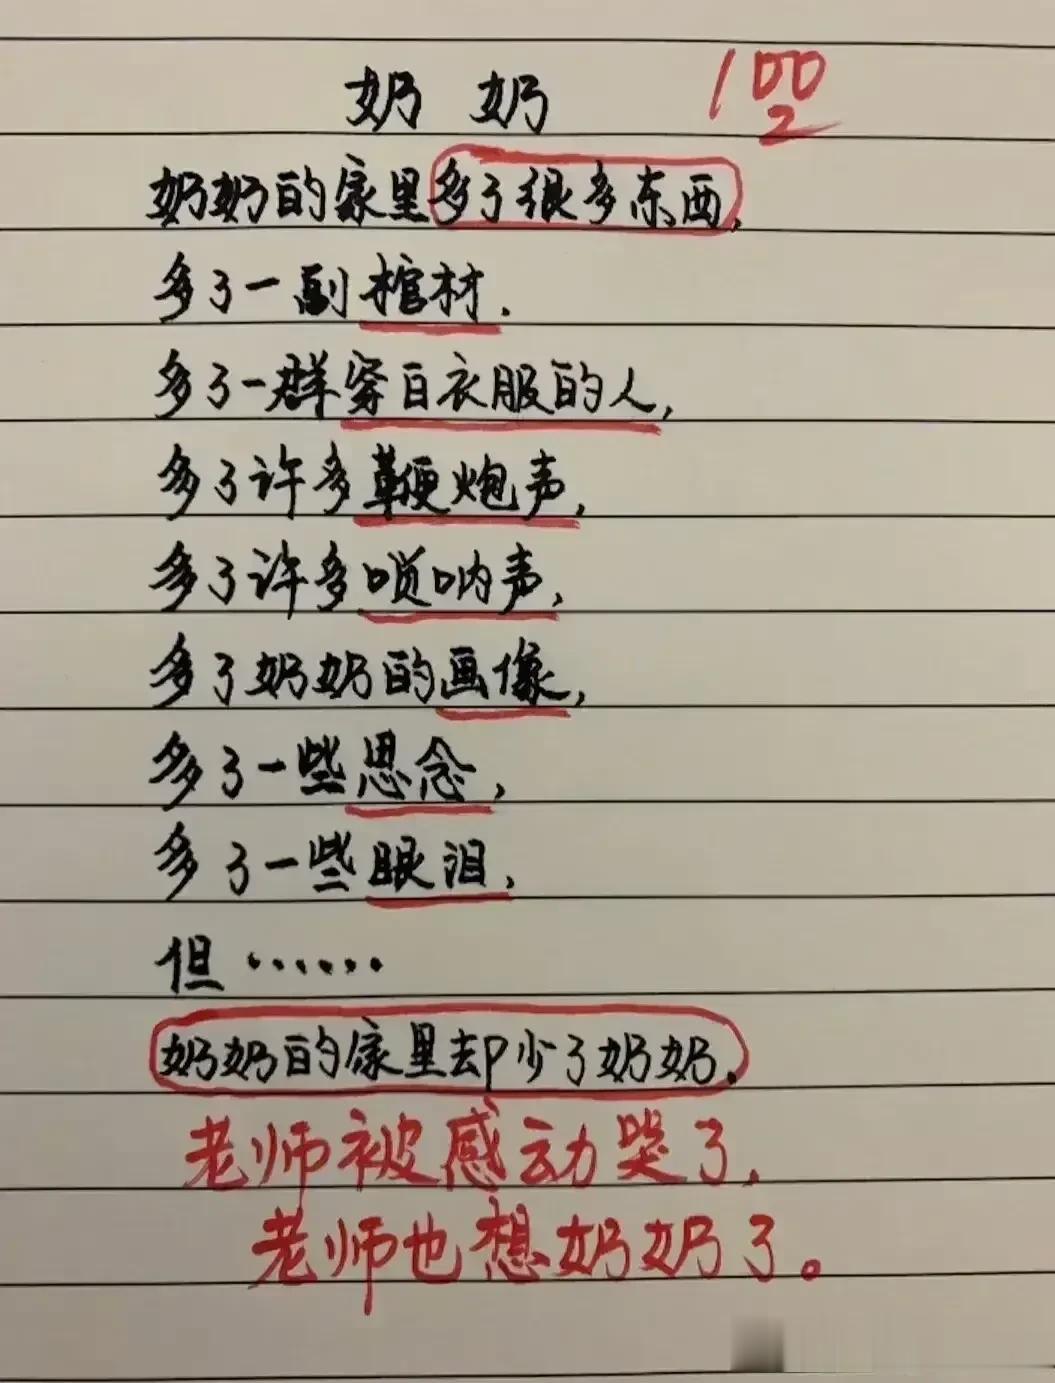 奶奶
100
奶奶的家里多了很多东西,
多了一副棺材.
多了一群穿白衣服的人,
多了许多鞭炮声,
多了许多唢呐声,
多了奶奶的画像,
多了一些思念,
多了一些眼泪,
但……
奶奶的家里却少了奶奶.
老师被感动哭了,
老师也想奶奶了。